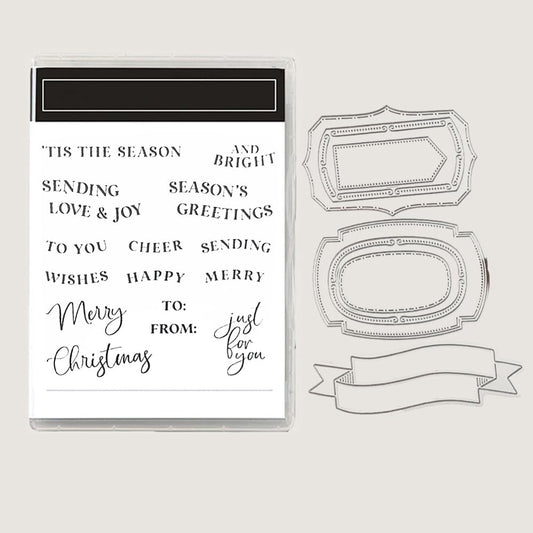 'TIS THE SEASON
AND
BRIGHT
SENDING
LOVE & JOY
SEASON'S
GREETINGS
TO YOU CHEER SENDING
WISHES HAPPY MERRY
Merry
Christmas
TO:
FROM:
just
for
you